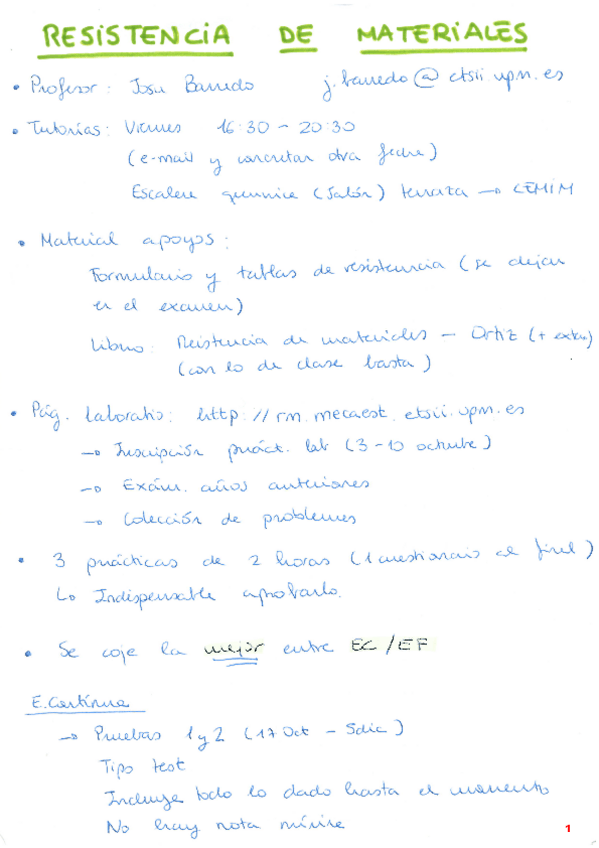 RESISTENCIA DE MATERIALES
• Profesor: Josu Barredo j.barredo@etsii.upm.es
• Tutorías: Viernes 16:30 - 20:30
(e-mail y concretar otra fecha)
Escalera química (Salón) terraza → CEMIM
• Material apoyos:
Formulario y tablas de resistencia (se dejan
en el examen)
Libro: Resistencia de materiales - Ortiz (+ extra)
(con lo de clase basta)
• Pág. laboratio: http://rm.mecaest.etsii.upm.es
→ Inscripción práct. lab (3-10 octubre)
→ Exám. años anteriores
→ Colección de problemas
• 3 prácticas de 2 horas (1 cuestionario al final)
↳ Indispensable aprobarlo.
• Se coje la mejor entre EC/EF
E. Continua
→ Pruebas 1 y 2 (17 Oct - 5 dic)
Tipo test
Incluye todo lo dado hasta el momento
No hay nota mínima
1